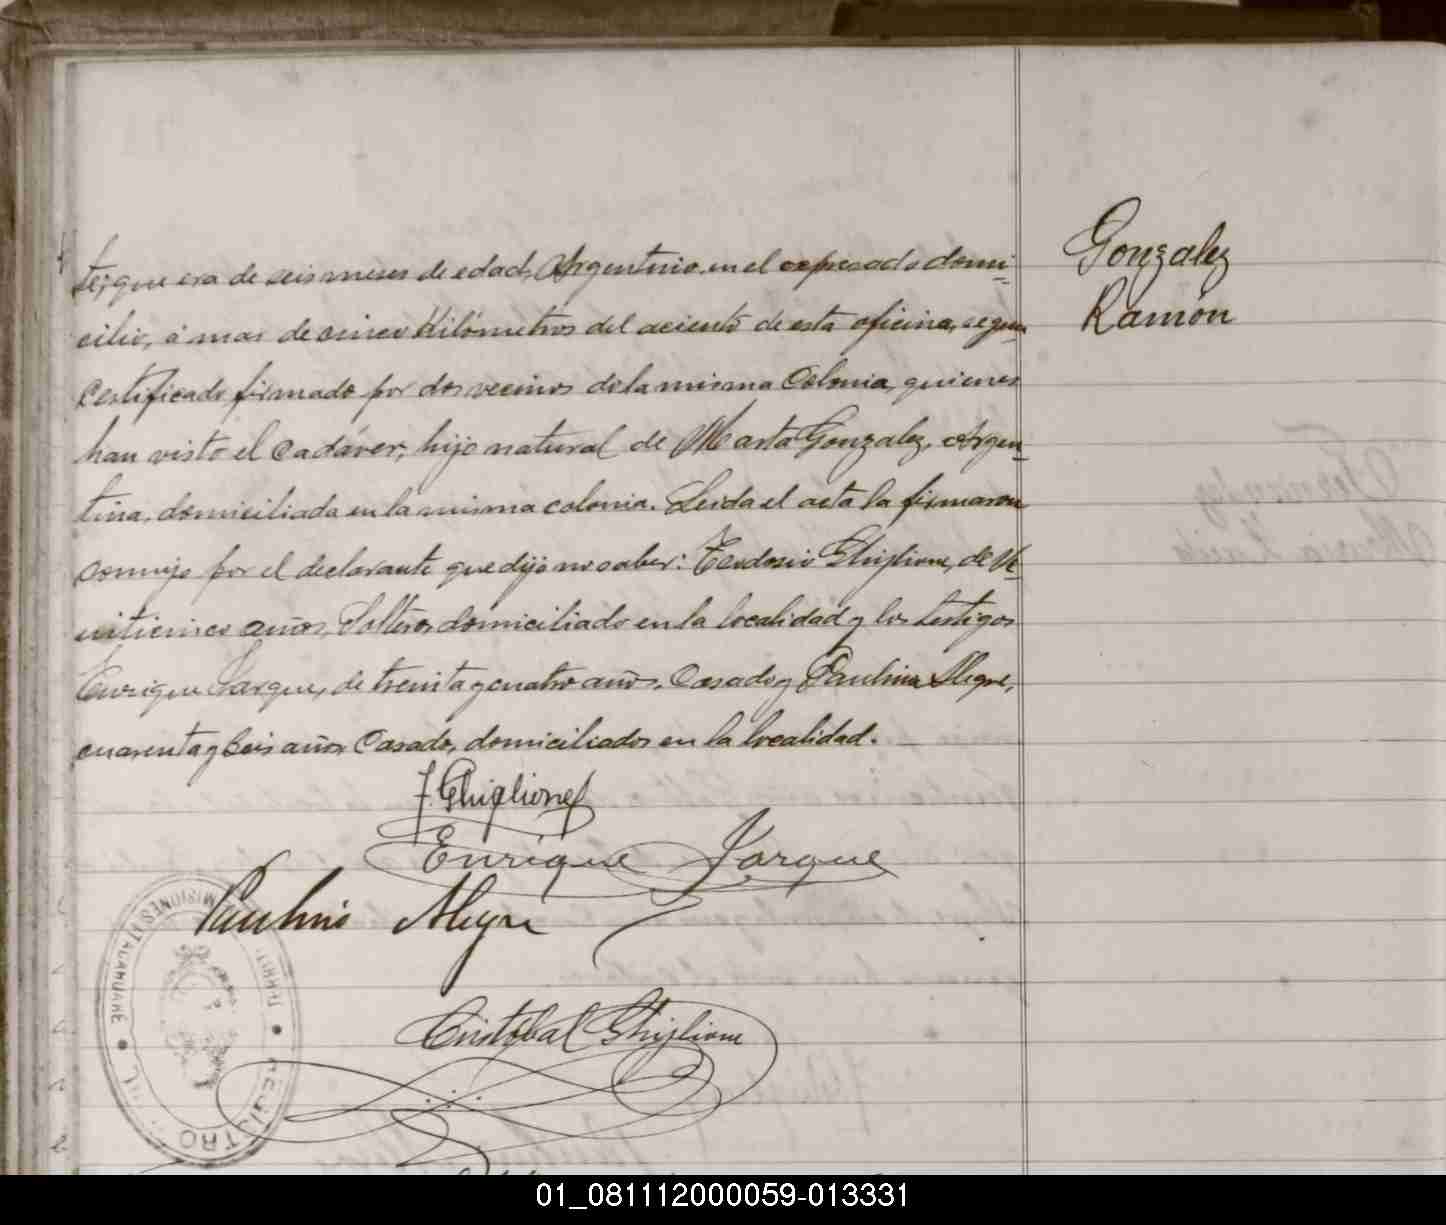 te; que era de seis meses de edad, Argentino, en el expresado domi=
cilio, á mas de cinco Kilómetros del aciento de esta oficina, segun
Certificado firmado por dos vecinos de la misma Colonia, quienes
han visto el Cadáver; hijo natural de Marta Gonzalez, Argen=
tina, domiciliada en la misma colonia. Leida el acta la firmaron
conmigo por el declarante que dijo no saber: Teodosio Ghiglione, de Ve=
inticinco años, Soltero, domiciliado en la localidad y los testigos
Enrique Jarque, de treinta y cuatro años, Casado y Paulino Alegre,
cuarenta y seis años Casado, domiciliados en la localidad.
Gonzalez
Ramón
T Ghiglione
Enrique Jarque
Paulino Alegre
Cristóbal Ghiglione
REGISTRO CIVIL
TERRIT. MISIONES ITACARUARÉ
01_081112000059-013331